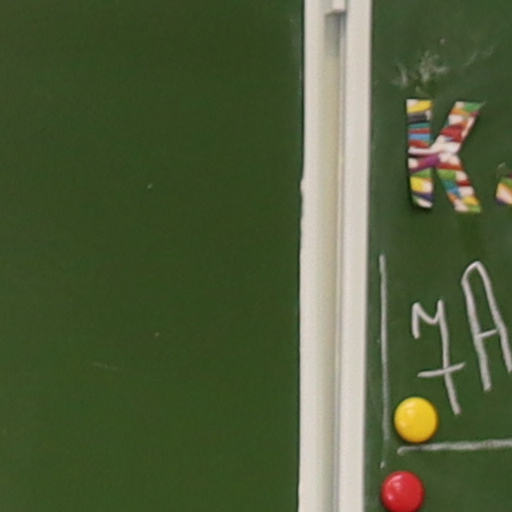 K
7A